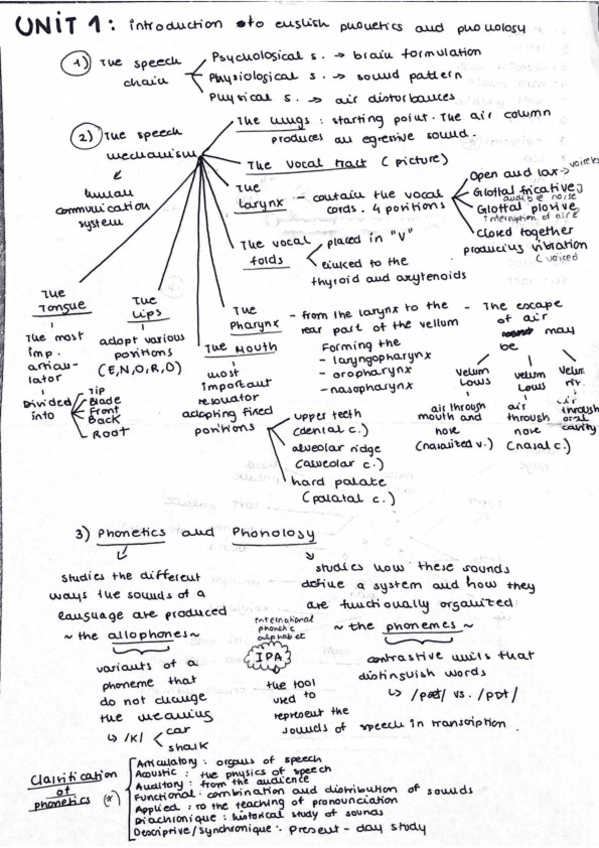 UNIT 1: introduction to english phonetics and phonology
1) The speech chain
Psychological s. → brain formulation
Physiological s. → sound pattern
Physical s. → air disturbances
2) The speech mechanism
human communication system
The lungs: starting point. The air column
produces an egresive sound.
The vocal tract (picture)
The larynx – contain the vocal
cords. 4 positions
Open and lax → voiceless
Glottal fricative
audible noise
Glottal plosive
interruption of air
Closed together
producing vibration
(voiced
The vocal folds
placed in "V"
linked to the
thyroid and arytenoids
The Tongue
The most
imp.
articu-
lator
Divided into
Tip
Blade
Front
Back
Root
The Lips
adopt various
positions
(E,N,O,R,O)
The Pharynx
– from the larynx to the
rear part of the vellum
Forming the
- laryngopharynx
- oropharynx
- nasopharynx
The Mouth
most
important
resonator
adopting fixed
positions
upper teeth
(dental c.)
alveolar ridge
(alveolar c.)
hard palate
(palatal c.)
- The escape
of air
may
be
Velum
Lows
air through
mouth and
nose
(nasalized v.)
velum
Lows
air
through
nose
(nasal c.)
Velum
air
through
oral
cavity
3) Phonetics and Phonology
studies the different
ways the sounds of a
language are produced
~ the allophones ~
variants of a
phoneme that
do not change
the meaning
↳ /k/
car
shark
International
phonetic
alphabet
IPA
the tool
used to
represent the
sounds of speech in transcription.
studies how these sounds
define a system and how they
are functionally organized
~ the phonemes ~
contrastive units that
distinguish words
Clasification
of
phonetics (*)
Articulatory: organs of speech
Acoustic: the physics of speech
Auditory: from the audience
Functional: combination and distribution of sounds
Applied: to the teaching of pronounciation
Diachronique: historical study of sounds
Descriptive/synchronique: present-day study